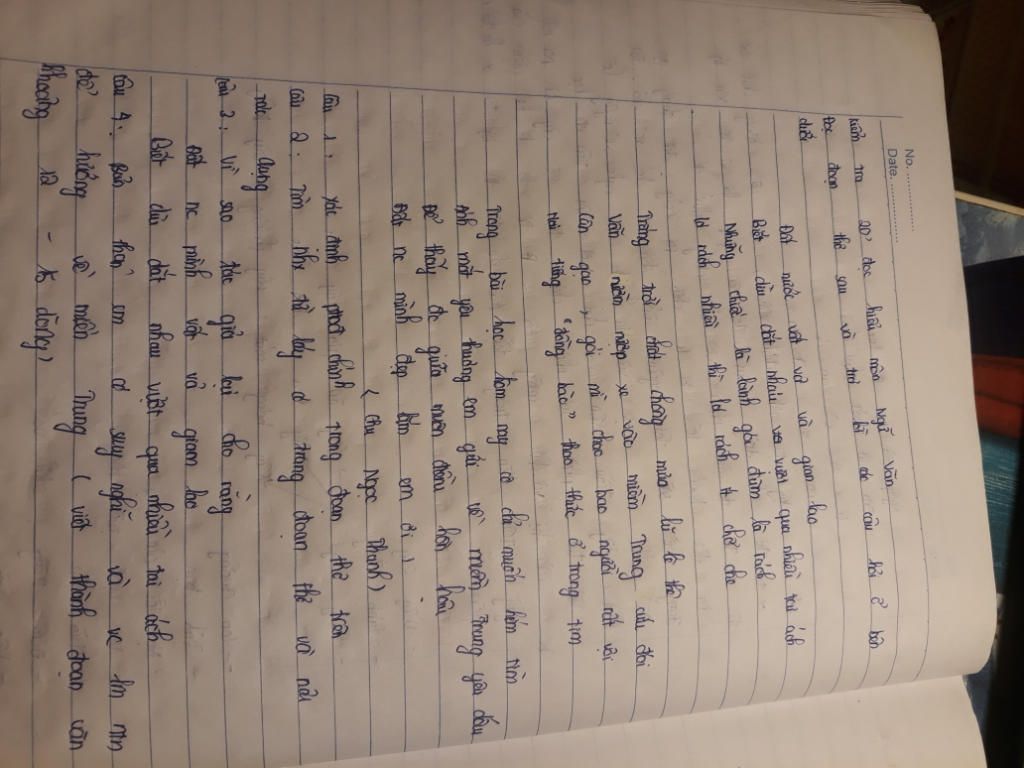 No. ................
Date. ................
đọc hiểu môn Ngữ văn
Đọc đoạn thơ sau và trả lời các câu hỏi ở bên
dưới
Đất nước vất vả và gian lao
Biết dìu dắt nhau vượt qua nhiều tai ách
Những là lành gói đùm lá rách
lá lành nhiều thì lá rách chở che
Trắng trời chưa mùa lũ lê thê
vẫn niềm nệp xe vào miền Trung cứu đói
Cân gạo, gói mì cho bao người rất vội
Hai tiếng "đồng bào" thao thức ở trong tim
Trong bài học hôm nay cô chỉ muốn hóm nim
ánh mắt yêu thương em gửi về miền Trung yêu dấu
Để thấy đc giữa muôn hôn
Đất nc mình đẹp lắm em ơi!
(Chu Ngọc Thanh)
câu 1: xác định ptbđ chính trong đoạn thơ trên
câu 2: tìm nhx từ láy ở trong đoạn thơ và nêu
tác dụng
câu 3: vì sao tác giả lại cho rằng
Đất nc mình vất vả gian lao
Biết dìu dắt nhau vượt qua nhiều tai ách
câu 4: Bản thân em có suy nghĩ và vc lm
để hướng về miền Trung (viết thành đoạn văn
khoảng 12 - 15 dòng)